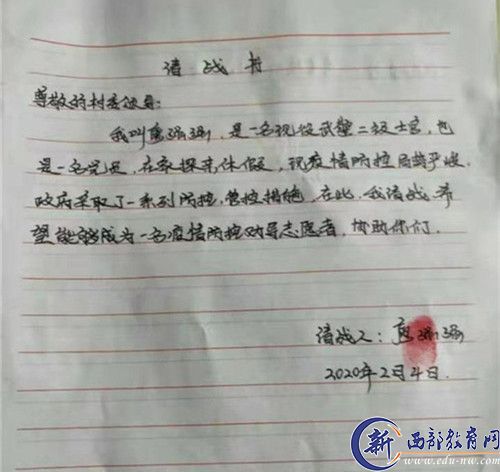 请战书
尊敬的村委领导:
我叫强强,是一名现役武警二级士官,也
是一名党员,在家探亲休假,现疫情防控局势严峻,
政府采取了一系列防控、管控措施,在此,我请战希
望能够成为一名疫情防控劝导志愿者,协助你们.
请战人:强强
2020年2月4日.
新 西部教育网
www.edu-nw.com